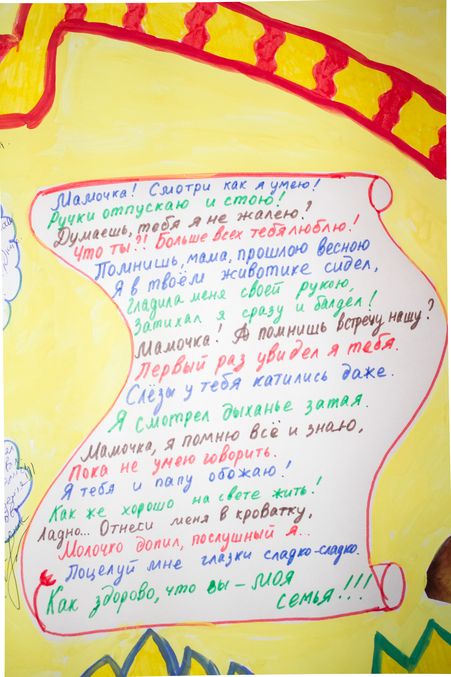 Мамочка! Смотри как я умею!
Ручки отпускаю и стою!
Думаешь, тебя я не жалею?
Что ты?! Больше всех тебя люблю!
Помнишь, мама, прошлою весною
Я в твоём животике сидел,
Гладила меня своей рукою,
Затихал я сразу и балдел!
Мамочка! А помнишь встречу нашу?
Первый раз увидел я тебя.
Слёзы у тебя катились даже.
Я смотрел дыханье затая.
Мамочка, я помню всё и знаю,
Пока не умею говорить.
Я тебя и папу обожаю!
Как же хорошо на свете жить!
Ладно... Отнеси меня в кроватку,
Молочко допил, послушный я...
Поцелуй мне глазки сладко-сладко.
Как здорово, что вы - моя
семья!!!